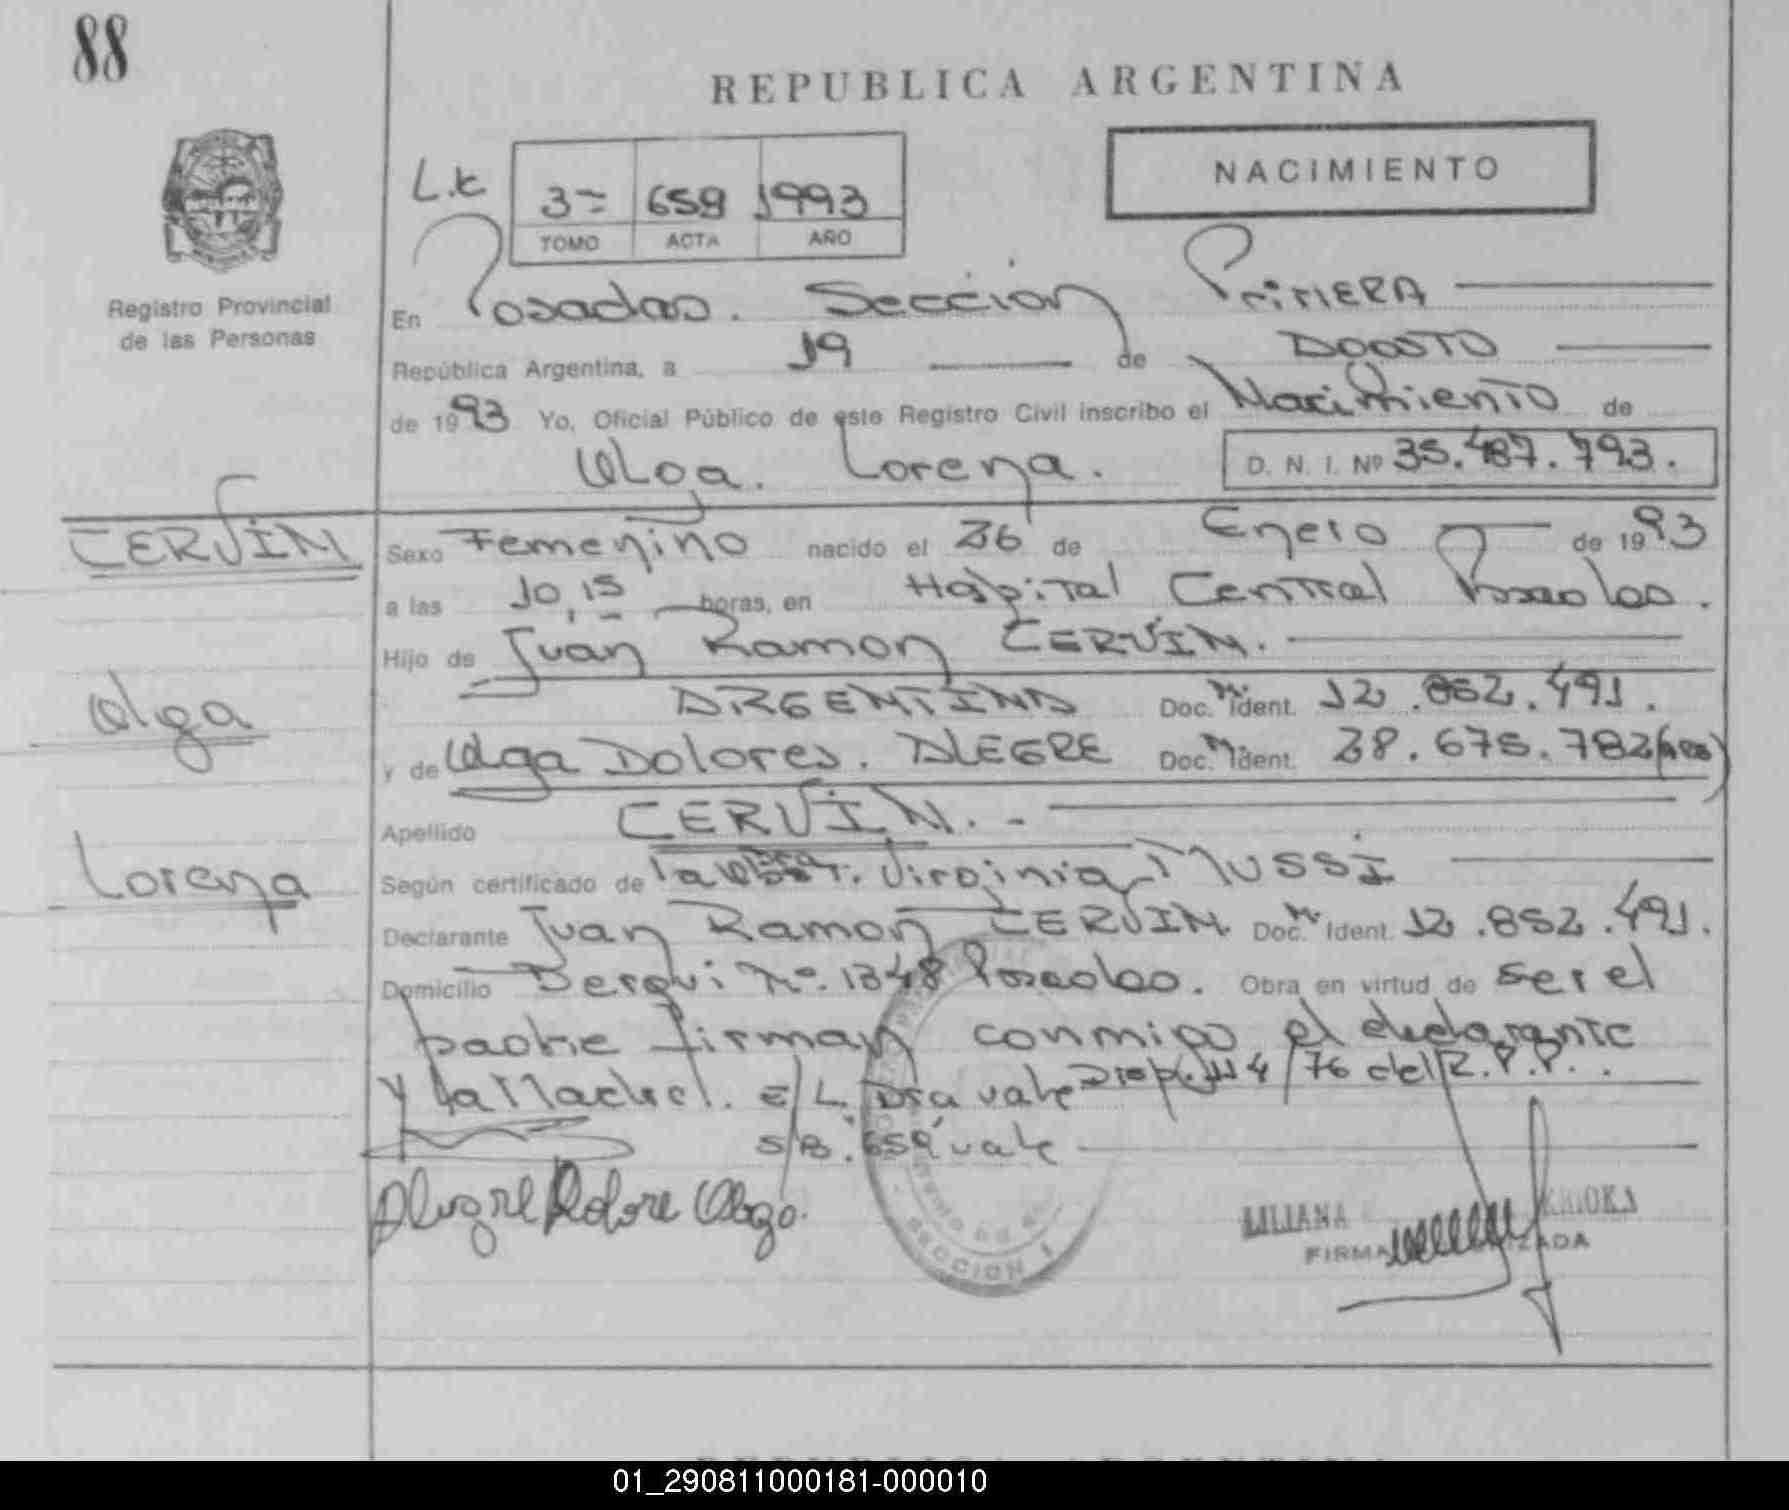 88
REPUBLICA ARGENTINA
NACIMIENTO
L.E
3= 659 1993
TOMO ACTA AÑO
Registro Provincial
de las Personas
En Posadas. Sección Primera
República Argentina, a 19 de Agosto
de 1993 Yo, Oficial Público de este Registro Civil inscribo el Nacimiento de
Olga. Lorena.
D. N. I. Nº 35.487.793.
CERVIN
Olga
Lorena
Sexo Femenino nacido el 26 de Enero de 1993
a las 10,15 horas, en Hospital Central Posadas.
Hijo de Juan Ramon CERVIN.
ARGENTINA Doc. M. Ident. 12.852.491.
y de Olga Dolores. ALEGRE Doc. M. Ident. 28.675.782
Apellido CERVIN.-
Según certificado de la Virginia Mussi
Declarante Juan Ramon CERVIN. Doc. M. Ident. 12.852.491.
Domicilio Derqui Nº. 1348 Posadas. Obra en virtud de ser el
padre firman conmigo el declarante
y la Madre. E/L. Dra vale Disp. 114/76 del R.P.P..
S/B. 659 vale
Alegre Dolore Olga.
LILIANA
FIRMA
SECCION 1
01_290811000181-000010